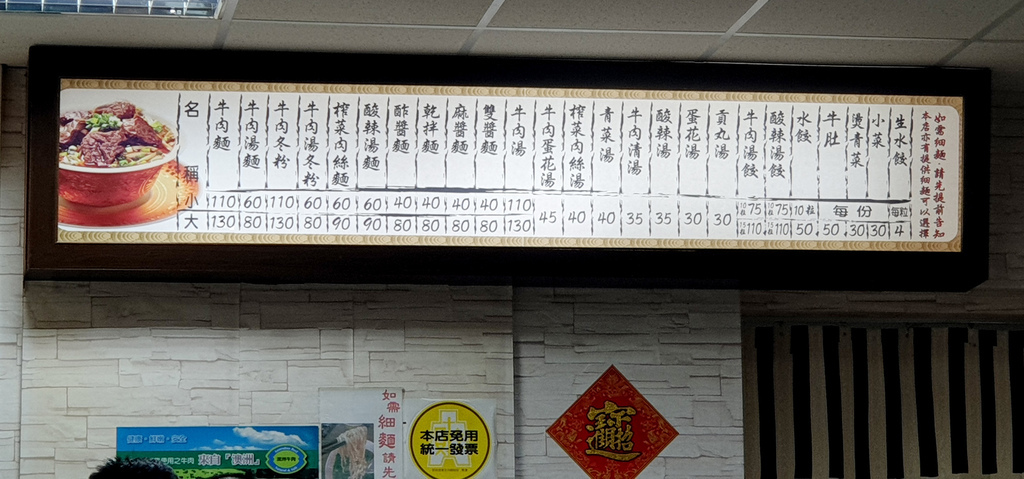 名稱 小 大
牛肉麵 110 130
牛肉湯麵 60 80
牛肉冬粉 110 130
牛肉湯冬粉 60 80
榨菜肉絲麵 60 90
酸辣湯麵 60 90
酢醬麵 40 80
乾拌麵 40 80
麻醬麵 40 80
雙醬麵 40 80
牛肉湯 110 130
牛肉蛋花湯 45
榨菜肉絲湯 40
青菜湯 40
牛肉清湯 35
酸辣湯 35
蛋花湯 30
貢丸湯 30
牛肉湯餃 75 110
酸辣湯餃 75 110
水餃 10粒 50
每份
牛肚 50
燙青菜 30
小菜 30
生水餃 每粒 4
如需細麵,請先提前告知
本店亦有提供細麵可以選擇
健康·鮮嫩·安全
用之牛肉 來自『澳洲』
如需細麵請先
本店免用
統一發票
招財進寶